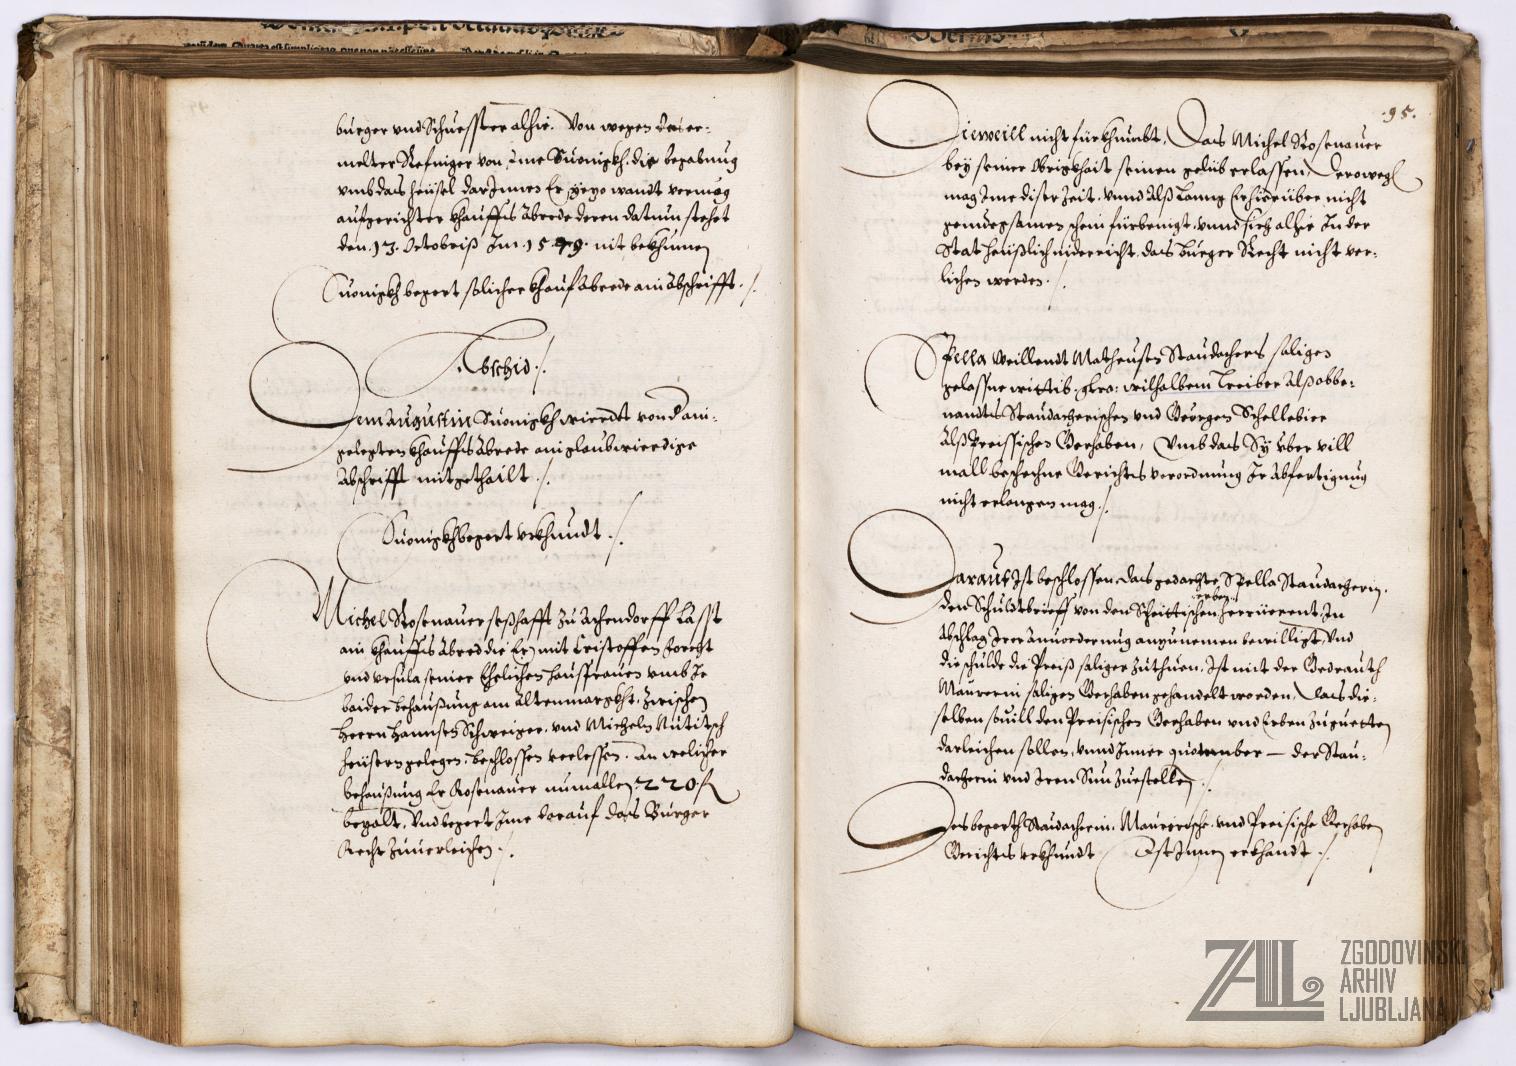 burger vnd Schuesster alhie. Von wegen das er-
melter Refniger von Ime Suonigkh. die bezalnug
vmb das heüsel darInnen Er yezo wandt vermög
aufgerichter khauffs Abrede deren datum stehet
den .13. Octobris Im .1579. nit bekhumen
Suonigkh begert solicher khauf Abrede ain Abschrifft ./.
Abschid ./.
Dem Augustin Suonigkh wierdt von d' ain-
gelegten khauffs Abrede ain glaubwierdige
Abschrifft mitgethailt ./.
Suonigkh begert vrkhundt ./.
Michel Rosenauer seßhafft zu Achendorff Lasst
ain khauffs Abred die Er mit Cristoffen
vnd vrsula seiner Ehelichen haussfrauen vmb Ir
baider behaußung am Altenmargkht. zwischen
Herrn Hannsen Schweiger. vnd Micheln
heüsern gelegen. beschlossen verlessen. An welicher
behaußung Er Rosenauer numallen .220. fl
bezalt. Vnd begert Ime darauf das Burger
Recht zuuerleichen ./.
.95.
Dieweill nicht fürkhumbt, Das Michel Rosenauer
bey seiner Obrigkhait seinen gelüb erlassen, Derowegen
mag Ime diser Zeit. vnnd Alß Lanng Er hierüber nicht
genuegsamen schein fürbringt. vnnd sich alhie In der
Stat heüßlich niderricht. das Burger Recht nicht ver-
lichen werden ./.
Spella Weillendt Matheusen Staudachers saligen
gelassne wittib. wilhalbem Treiber Alß obbe-
nandts Staudacherischen vnd Georgen Schellebier
Alß Preissischen Gerhaben, Vmb das Sy vber vill
mall beschechne Gerichts verordnung Ir Abfertigung
nicht erlangen mag ./.
Darauf Ist beschlossen. das gedachte Spella Staudacherin.
den Schuldtbrieff von den Scheittischen erben herrüerent In
Abschlag Irer Anuorderung anzunemen bewilligt, Vnd
die schulde die Preiß saliger zuthuen. Ist mit der Gedrauth
Maurerin saligen Gerhaben gehandelt worden, das die-
selben souill den Preisischen Gerhaben vnd Erben zuguetten
darleichen sollen, vnnd Inner quotember — der Stau-
dacherin vnd Iren Sun zuestellen ./.
Des begerth Staudacherin. Maurerische. vnd Preisische Gerhaben
Gerichts vrkhundt Ist Innen erkhandt ./.
ZAL
ZGODOVINSKI
ARHIV
LJUBLJANA